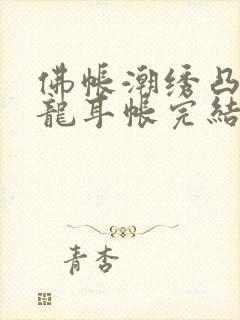 佛帳潮绣凸
龍耳帐完結
青杏